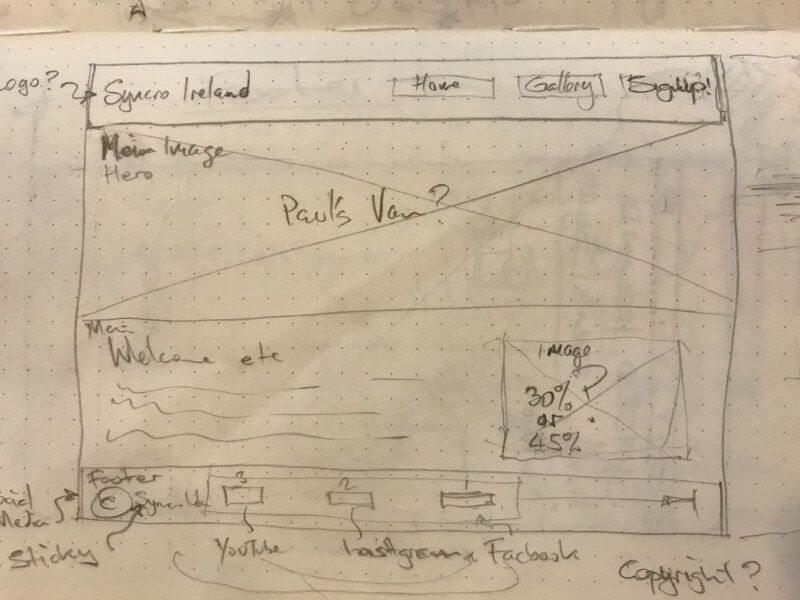 Logo?
Syncro Ireland
Home
Gallery
Signup!
Main Image
Hero
Paul's Van?
Main
Welcome etc
Image
30%?
or
45%
Footer
©
3
2
1
Sticky
YouTube
Instagram
Facbook
Copyright?